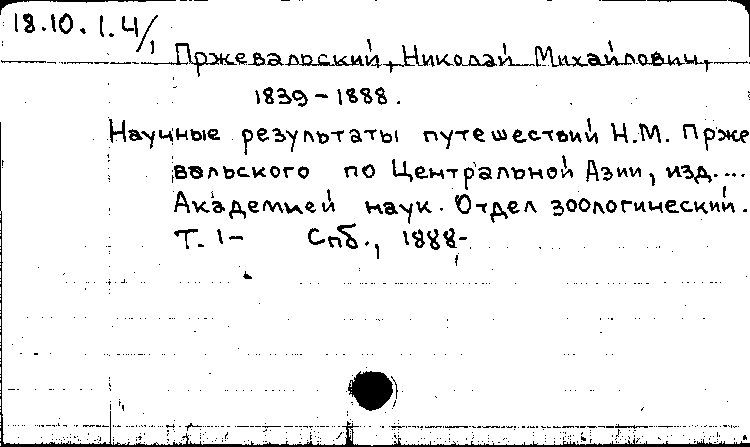 18.10.1.4/,
Пржевальский, Николай Михайлович,
1839-1888.
Научные результаты путешествий Н.М. Прже
вальского по Центральной Азии, изд....
Академией наук. Отдел зоологический.
Т. 1- Спб., 1888-